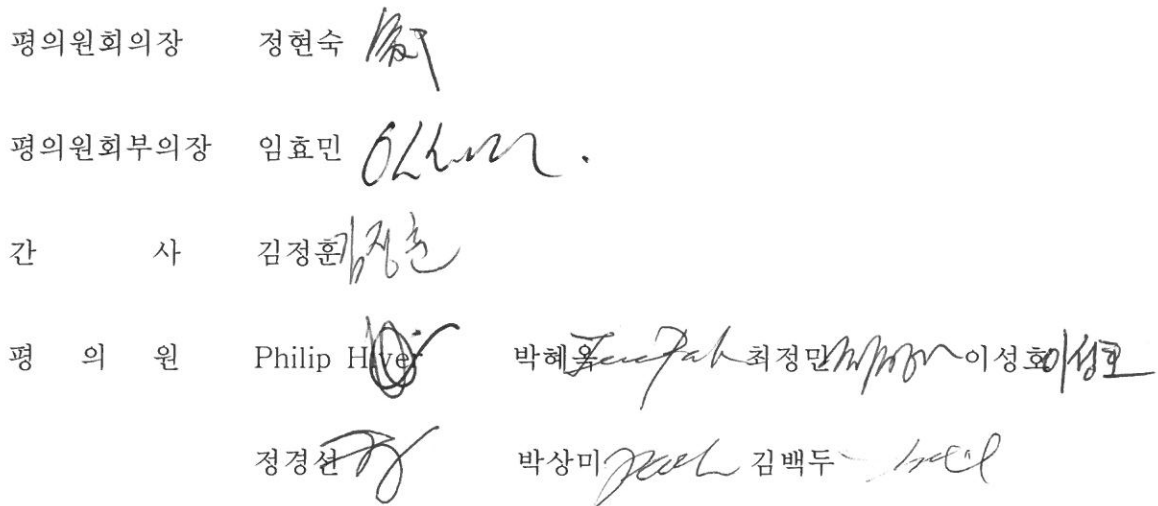 평의원회의장 정현숙
평의원회부의장 임효민
간 사 김정훈 김정훈
평 의 원 Philip Hiver 박혜옥 최정만 이성호 이성호
정경선 박상미 김백두